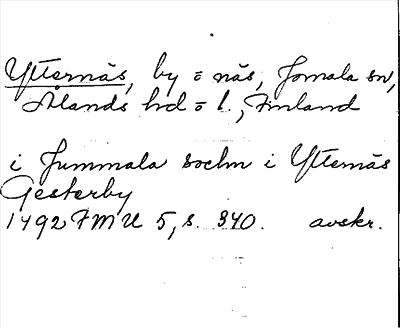 Ytternäs, by o näs, Jomala sn,
Ålands hd o l., Finland
i Jummala sochn i Ytternäs
Gesterby
1492 FMU 5, s. 340. avskr.